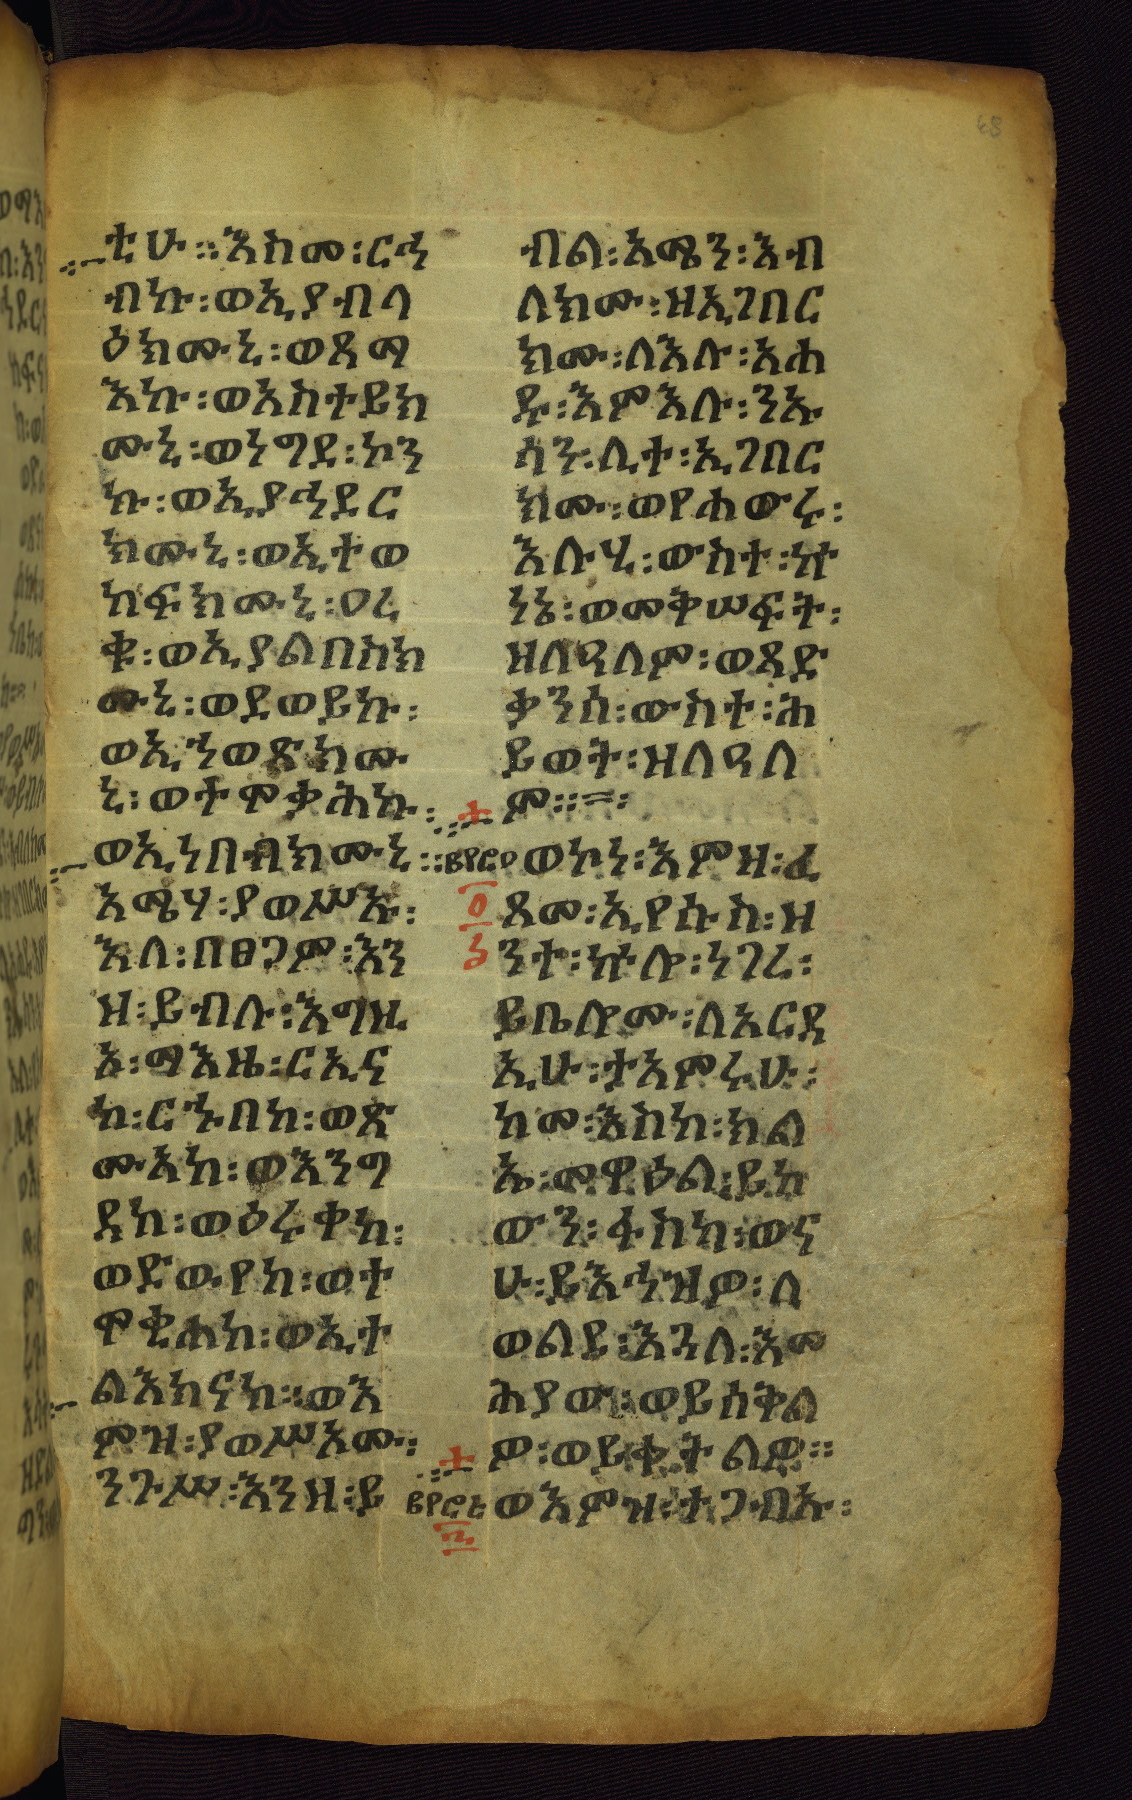 ቲሁ ። እስመ ፡ ርኅ
ብኩ ፡ ወኢያብላ
ዕክሙኒ ፡ ወጸማ
እኩ ፡ ወኢስተይክ
ሙኒ ፡ ወነግደ ፡ ኮን
ኩ ፡ ወኢያኅደር
ክሙኒ ፡ ወኢተወ
ከፍክሙኒ ፡ ዐረ
ቁ ፡ ወኢያልበስክ
ሙኒ ፡ ወደወይኩ ፡
ወኢኀወጽክሙ
ኒ ፡ ወተሞቃሕኩ ፡
ወኢነበብክሙኒ ።
አሜሃ ፡ ያወሥኡ ፡
እለ ፡ በፀጋም ፡ እን
ዘ ፡ ይብሉ ፡ እግዚ
ኦ ፡ ማእዜ ፡ ርኢና
ከ ፡ ርኁበከ ፡ ወጽ
ሙአከ ፡ ወእንግ
ዳከ ፡ ወዕሩቀከ ፡
ወድውየከ ፡ ወተ
ሞቂሐከ ፡ ወኢተ
ልእክናከ ። ወእ
ምዝ ፡ ያወሥኦሙ ፡
ንጉሥ ፡ እንዘ ፡ ይ
ብል ፡ አሜን ፡ እብ
ለክሙ ፡ ዘኢገበር
ክሙ ፡ ለእሉ ፡ አሐ
ዱ ፡ እምእሉ ፡ ንኡ
ሳን ፡ ሊተ ፡ ኢገበር
ክሙ ፡ ወየሐውሩ ፡
እሉሂ ፡ ውስተ ፡ ኵ
ነኔ ፡ ወመቅሠፍት ፡
ዘለዓለም ፡ ወጻድ
ቃንሰ ፡ ውስተ ፡ ሕ
ይወት ፡ ዘለዓለ
ም ። = ፡
ወኮነ ፡ እምዝ ፡ ፈ
ጸመ ፡ ኢየሱስ ፡ ዘ
ንተ ፡ ኵሎ ፡ ነገረ ፡
ይቤሎሙ ፡ ለአርዳ
ኢሁ ፡ ታአምሩሁ ፡
ከመ ፡ እስከ ፡ ክል
ኤ ፡ መዋዕል ፡ ይከ
ውን ፡ ፋስካ ፡ ወና
ሁ ፡ ይእኅዝዎ ፡ ለ
ወልደ ፡ እጓለ ፡ እመ
ሕያው ፡ ወይሰቅል
ዎ ፡ ወይቀትልዎ ።
ወእምዝ ፡ ተጋብኡ ፡